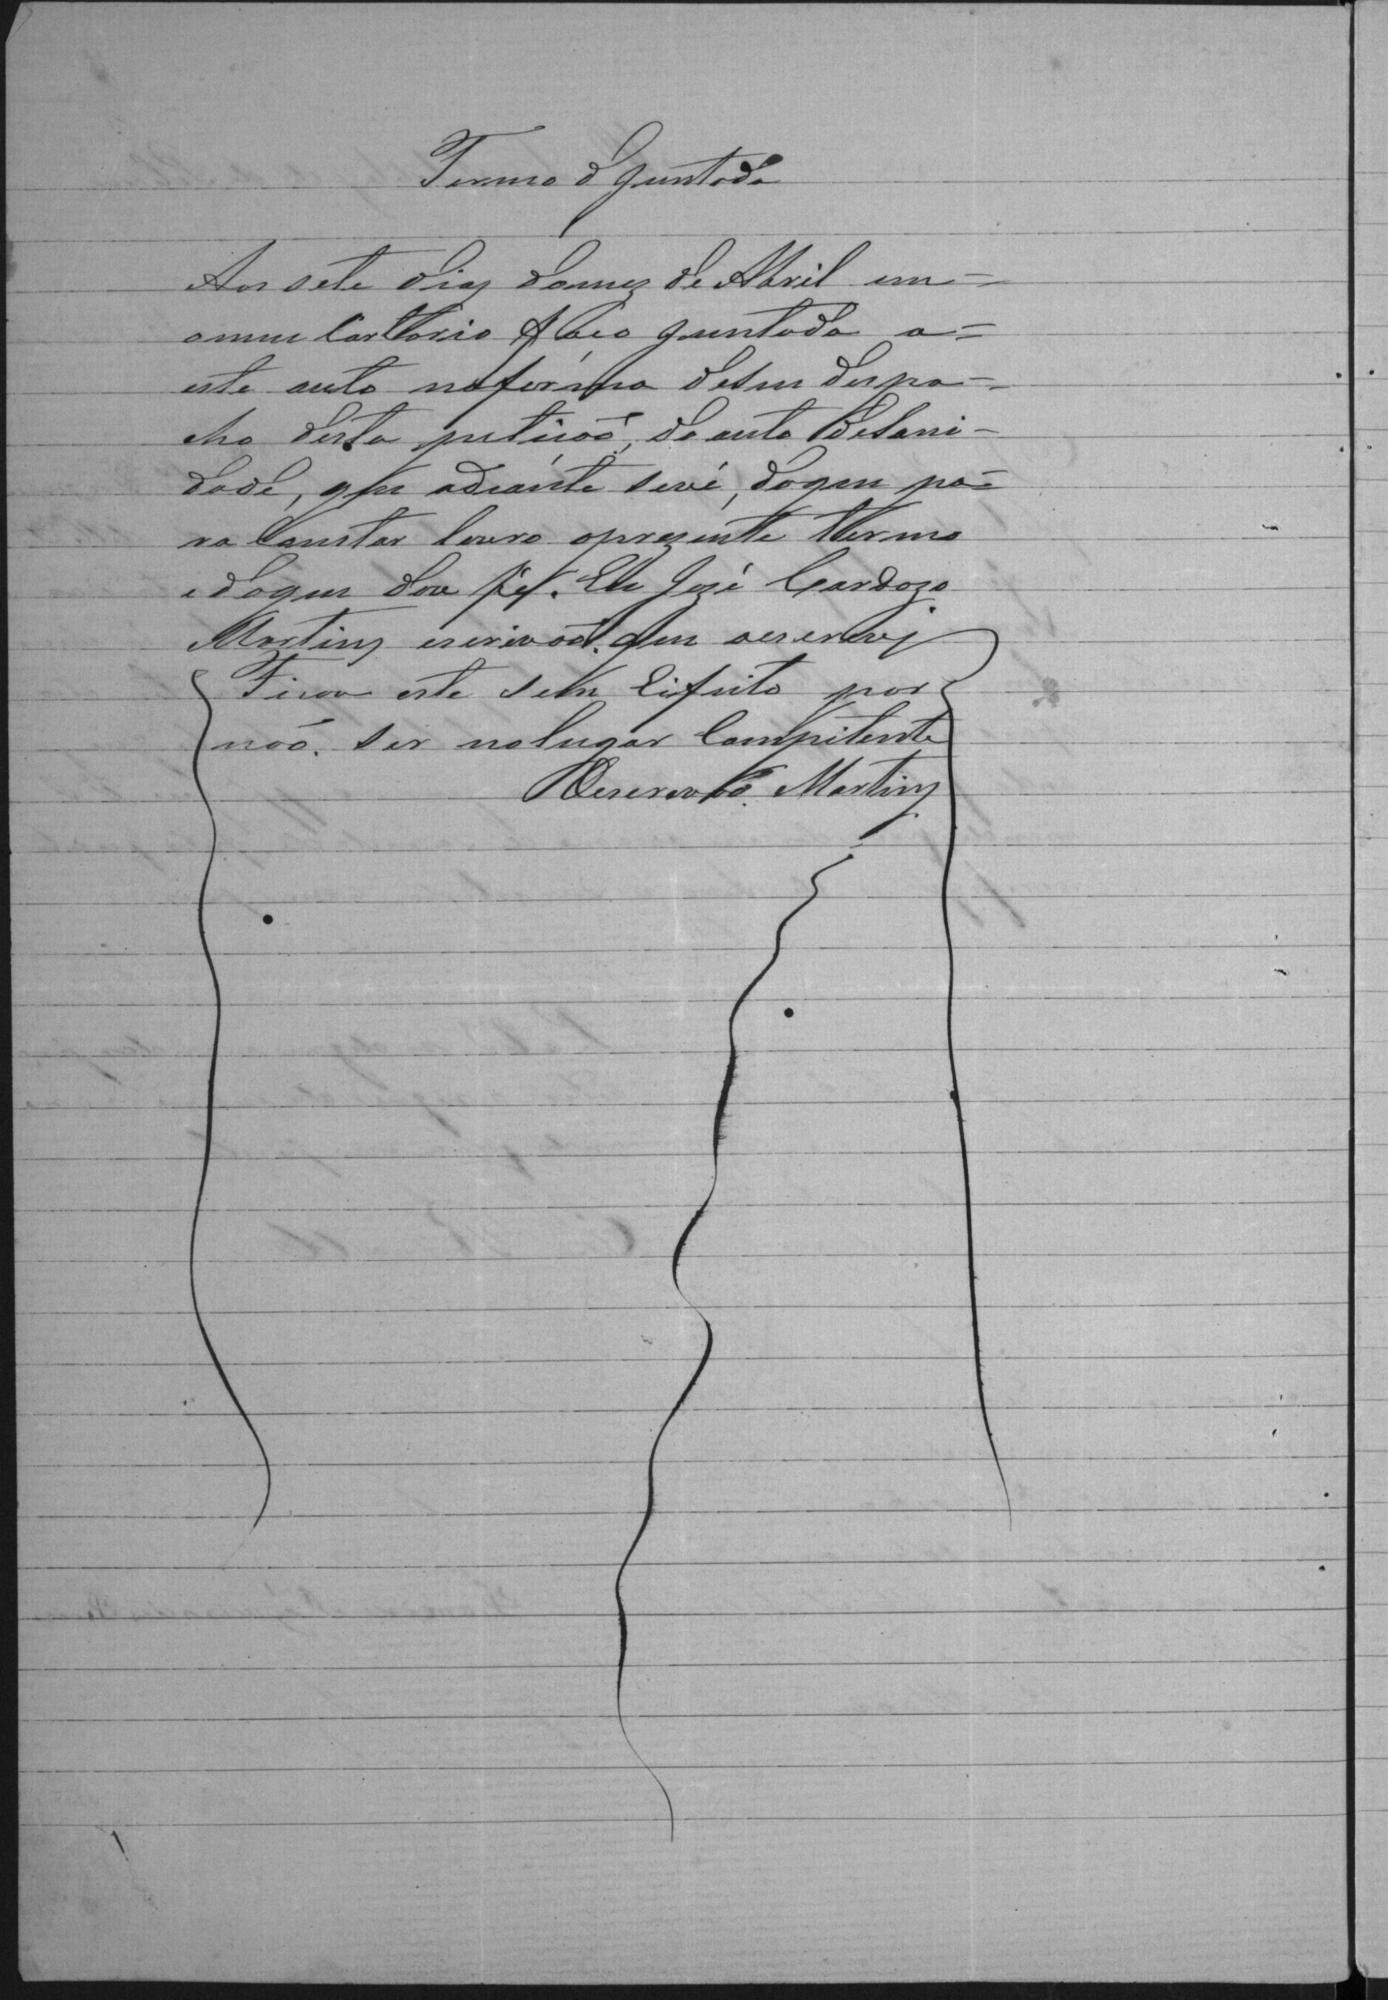 Termo d Juntada
Aos sete dias domez de Abril em=
omeu Cartorio faço juntada a=
este auto naforma deseu despa=
cho desta petiçaõ, do auto desani-
dade, que adiante sevé, doque pa=
ra Constar lavro oprezente thermo
edoque dou fé. Eu José Cardozo
Martins escrivaõ. que oescrevy
Ficou este sem Eifeito por
naõ. ser nolugar Compitente
Oescrivaõ. Martins